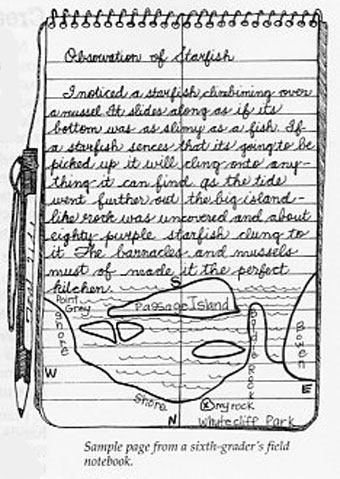 Observation of Starfish
I noticed a starfish climbiming over
a mussel. It slides along as if its
bottom was as slimy as a fish. If
a starfish sences that its going to be
picked up it will cling onto any-
thing it can find as the tide
went further out the big island-
like rock was uncovered and about
eighty purple starfish clung to
it The barnacles and mussels
must of made it the perfect
kitchen.
S
Point
Grey
Passage Island
Shore
Bowen
W
E
Shore
my rock
N
Whytecliff Park
Sample page from a sixth-grader's field
notebook.